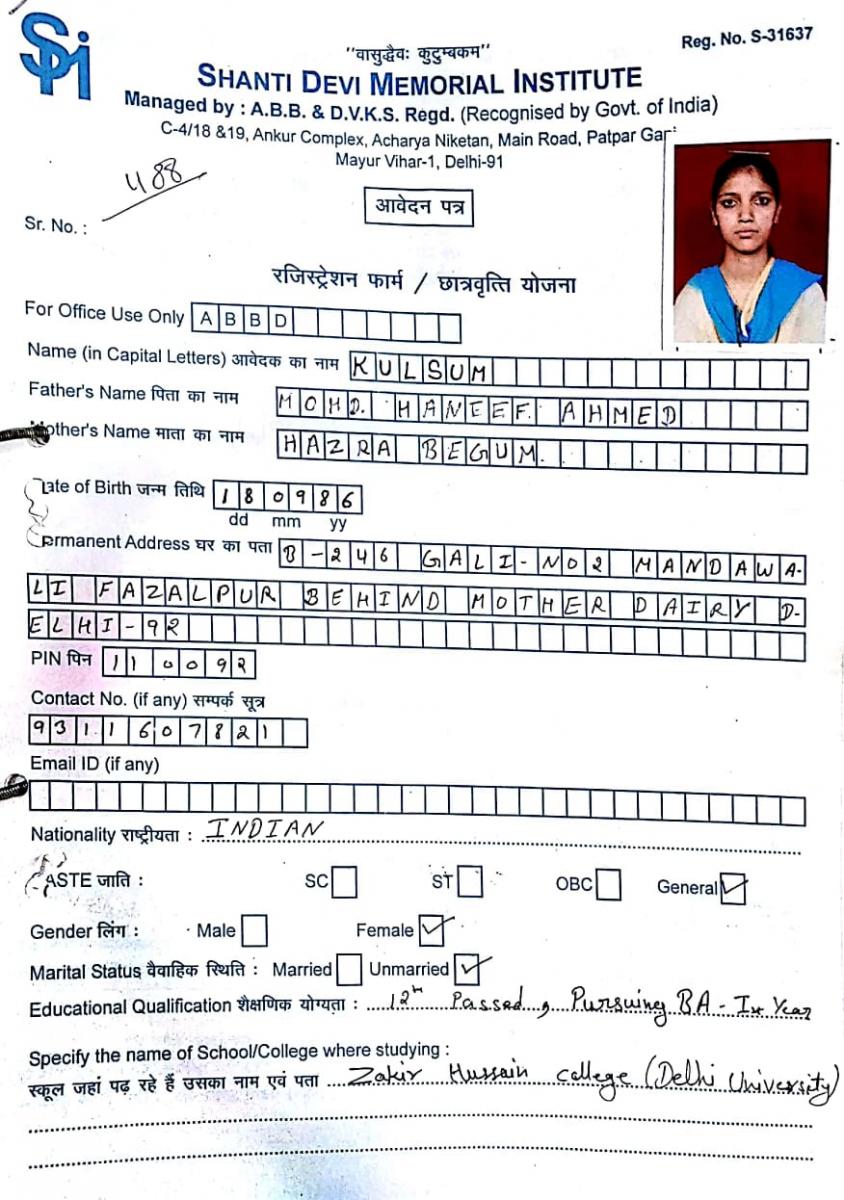 SDMI
"वासुद्धैवः कुटुम्बकम"
Reg. No. S-31637
SHANTI DEVI MEMORIAL INSTITUTE
Managed by : A.B.B. & D.V.K.S. Regd. (Recognised by Govt. of India)
C-4/18 &19, Ankur Complex, Acharya Niketan, Main Road, Patpar Gar
Mayur Vihar-1, Delhi-91
आवेदन पत्र
Sr. No. : 488
रजिस्ट्रेशन फार्म / छात्रवृत्ति योजना
For Office Use Only ABBD
Name (in Capital Letters) आवेदक का नाम KULSUM
Father's Name पिता का नाम MOHD. HANEEF. AHMED
other's Name माता का नाम HAZRA BEGUM.
ate of Birth जन्म तिथि 180986
dd mm yy
ermanent Address घर का पता B-246 GALI-NO2 MANDAWA-
LI FAZALPUR BEHIND MOTHER DAIRY D-
ELHI-92
PIN पिन 110092
Contact No. (if any) सम्पर्क सूत्र
9311607821
Email ID (if any)
Nationality राष्ट्रीयता : INDIAN
ASTE जाति : SC ST OBC General ✓
Gender लिंग : Male Female ✓
Marital Status वैवाहिक स्थिति : Married Unmarried ✓
Educational Qualification शैक्षणिक योग्यता : 12th Passed, Pursuing BA - Ist Year
Specify the name of School/College where studying :
स्कूल जहां पढ़ रहे हैं उसका नाम एवं पता Zakir Hussain college (Delhi University)